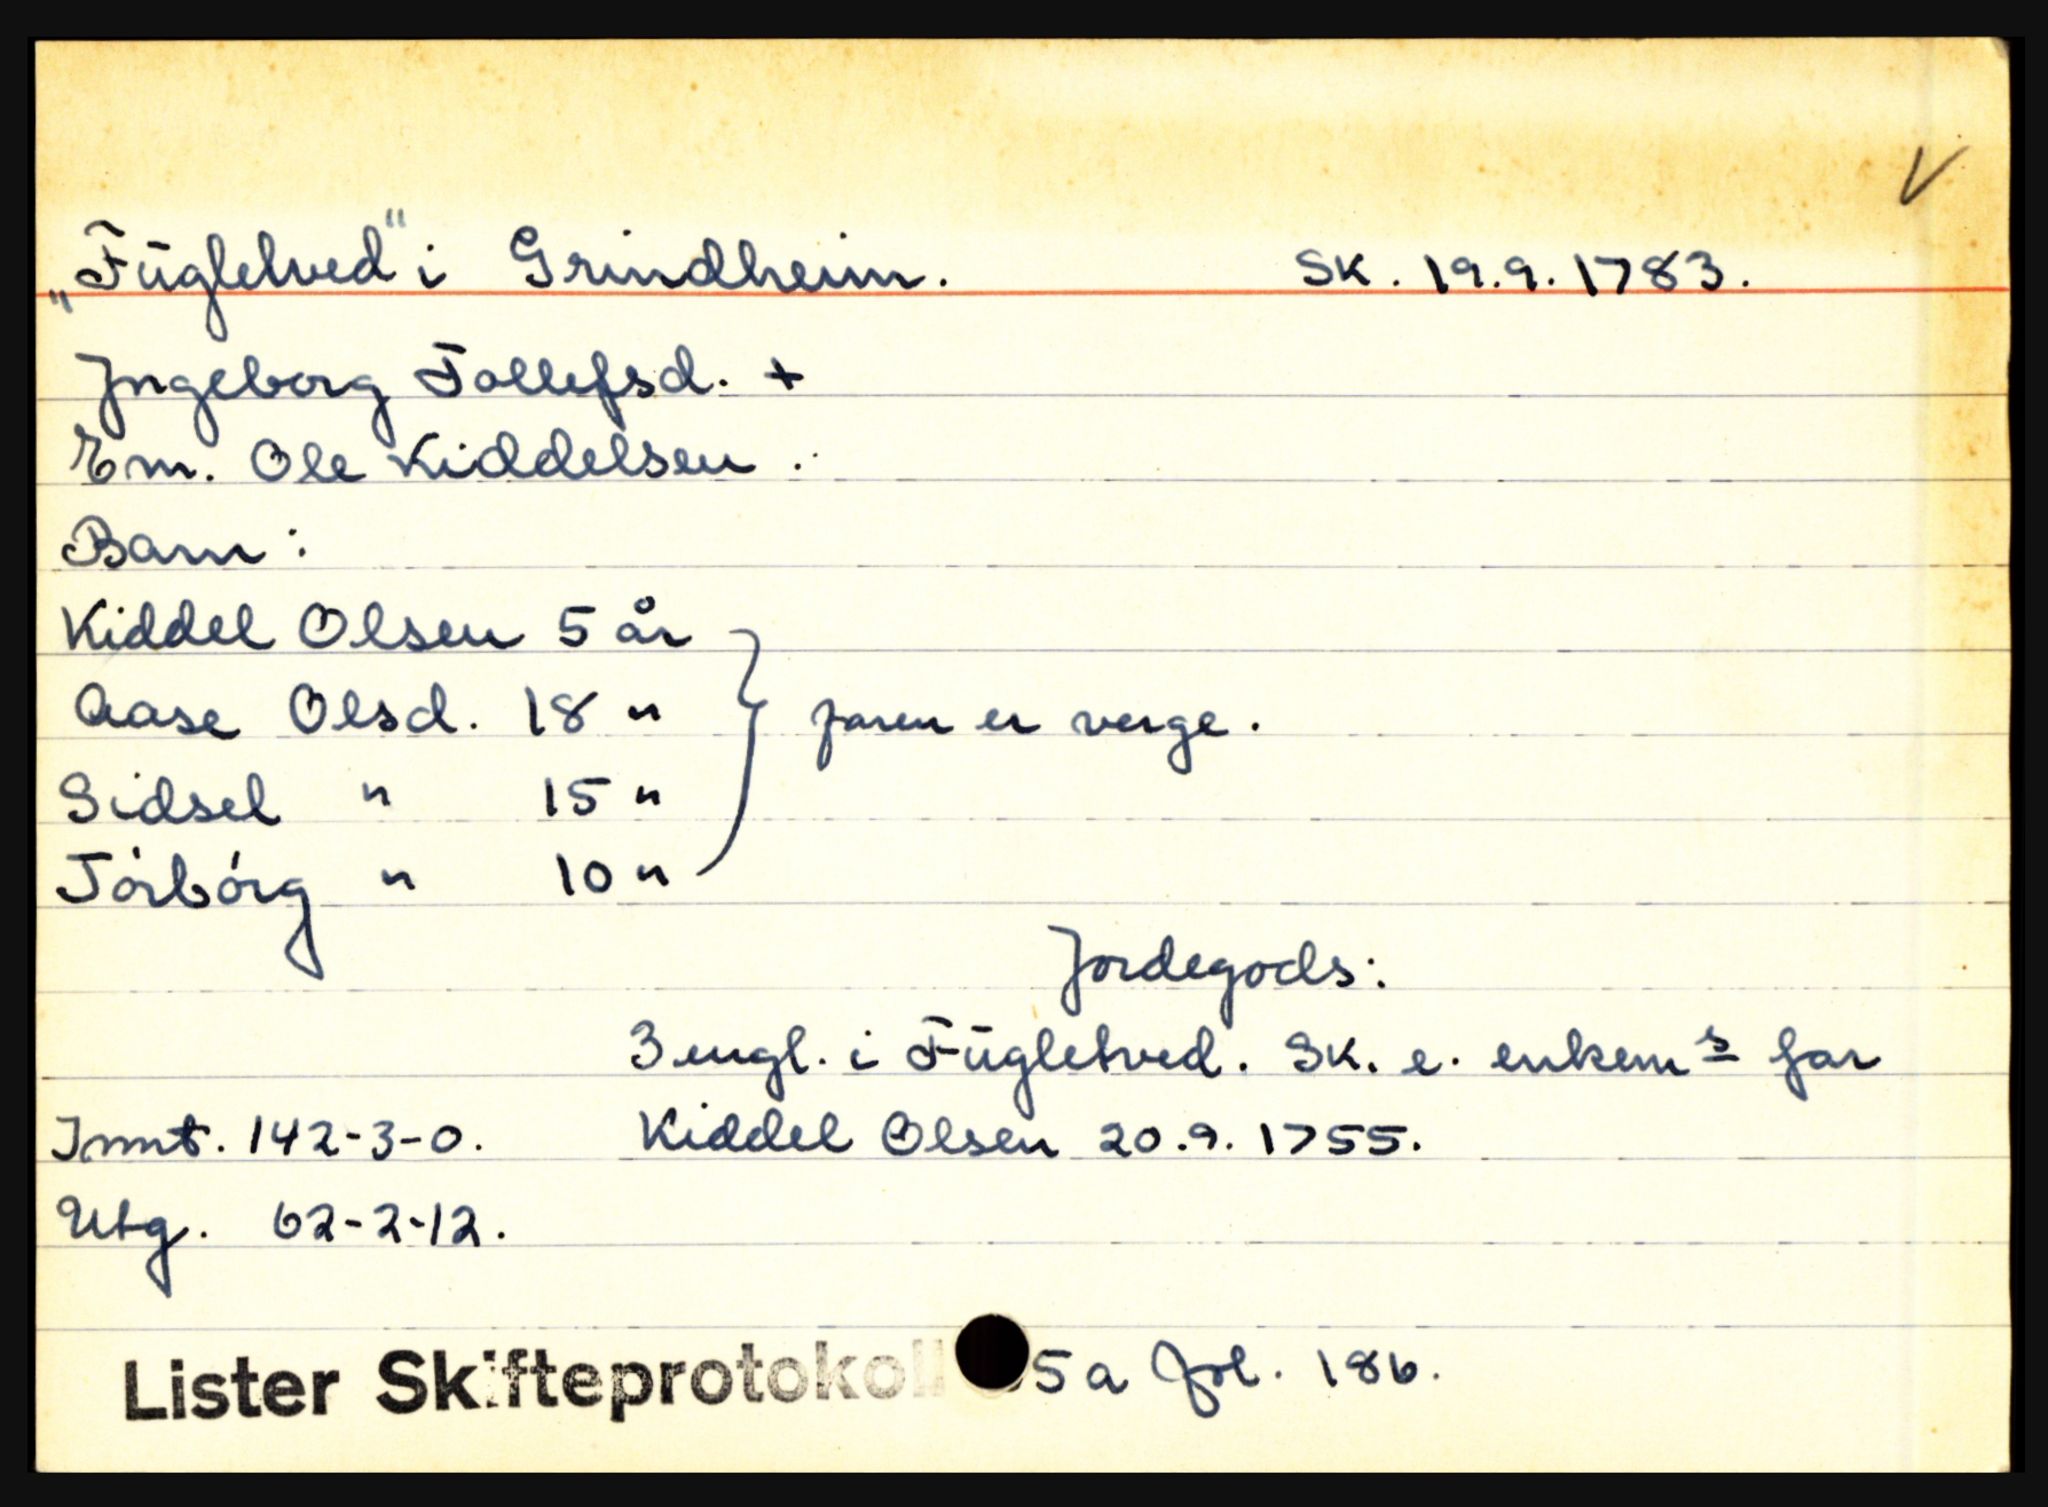 V
„Fūgletved“ i Grindheim. SK. 19.9.1783.
Jngeborg Tollefsd. +
Em. Ole Kiddelsen.
Barn:
Kiddel Olsen 5 år
Aase Olsd. 18 " faren er verge.
Sidsel " 15 "
Tórbórg " 10 "
Jordegods:
3 engl. i Fūgletved. Sk. e. enkem s far
Innt. 142-3-0. Kiddel Olsen 20.9.1755.
Utg. 62-2-12.
Lister Skifteprotokoll 5a fol. 186.